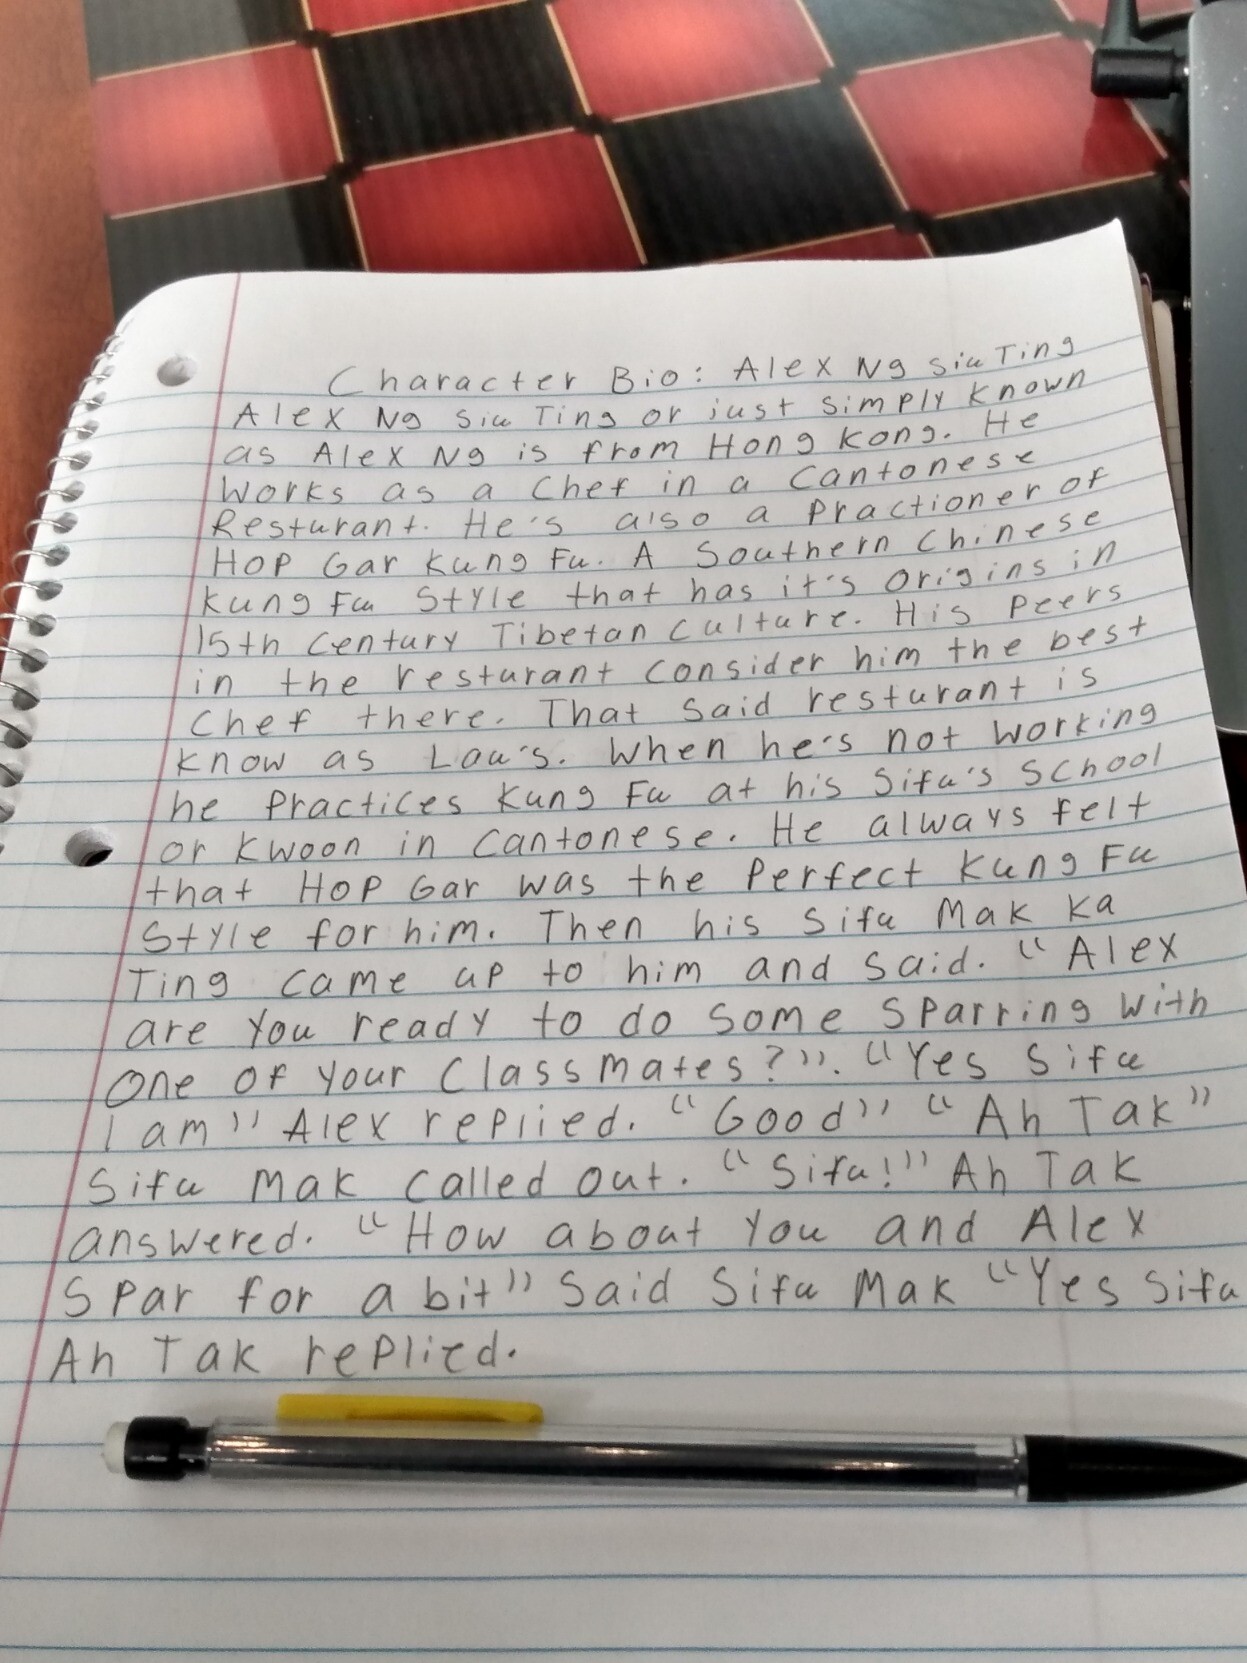 Character Bio: Alex Ng Siu Ting
Alex Ng Siu Ting or just simply known
as Alex Ng is from Hong Kong. He
works as a chef in a Cantonese
Resturant. He's also a Practioner of
Hop Gar Kung Fu. A Southern Chinese
Kung Fu Style that has it's origins in
15th Century Tibetan culture. His Peers
in the resturant consider him the best
chef there. That said resturant is
know as Lau's. When he's not working
he Practices Kung Fu at his Sifu's School
or Kwoon in Cantonese. He always felt
that Hop Gar was the Perfect Kung Fu
Style for him. Then his Sifu Mak Ka
Ting came up to him and said. "Alex
are you ready to do some sparring with
One of your Classmates?". "Yes Sifu
I am" Alex replied. "Good" "Ah Tak"
Sifu Mak called out. "Sifu!" Ah Tak
answered. "How about you and Alex
Spar for a bit" Said Sifu Mak "Yes Sifu
Ah Tak replied.